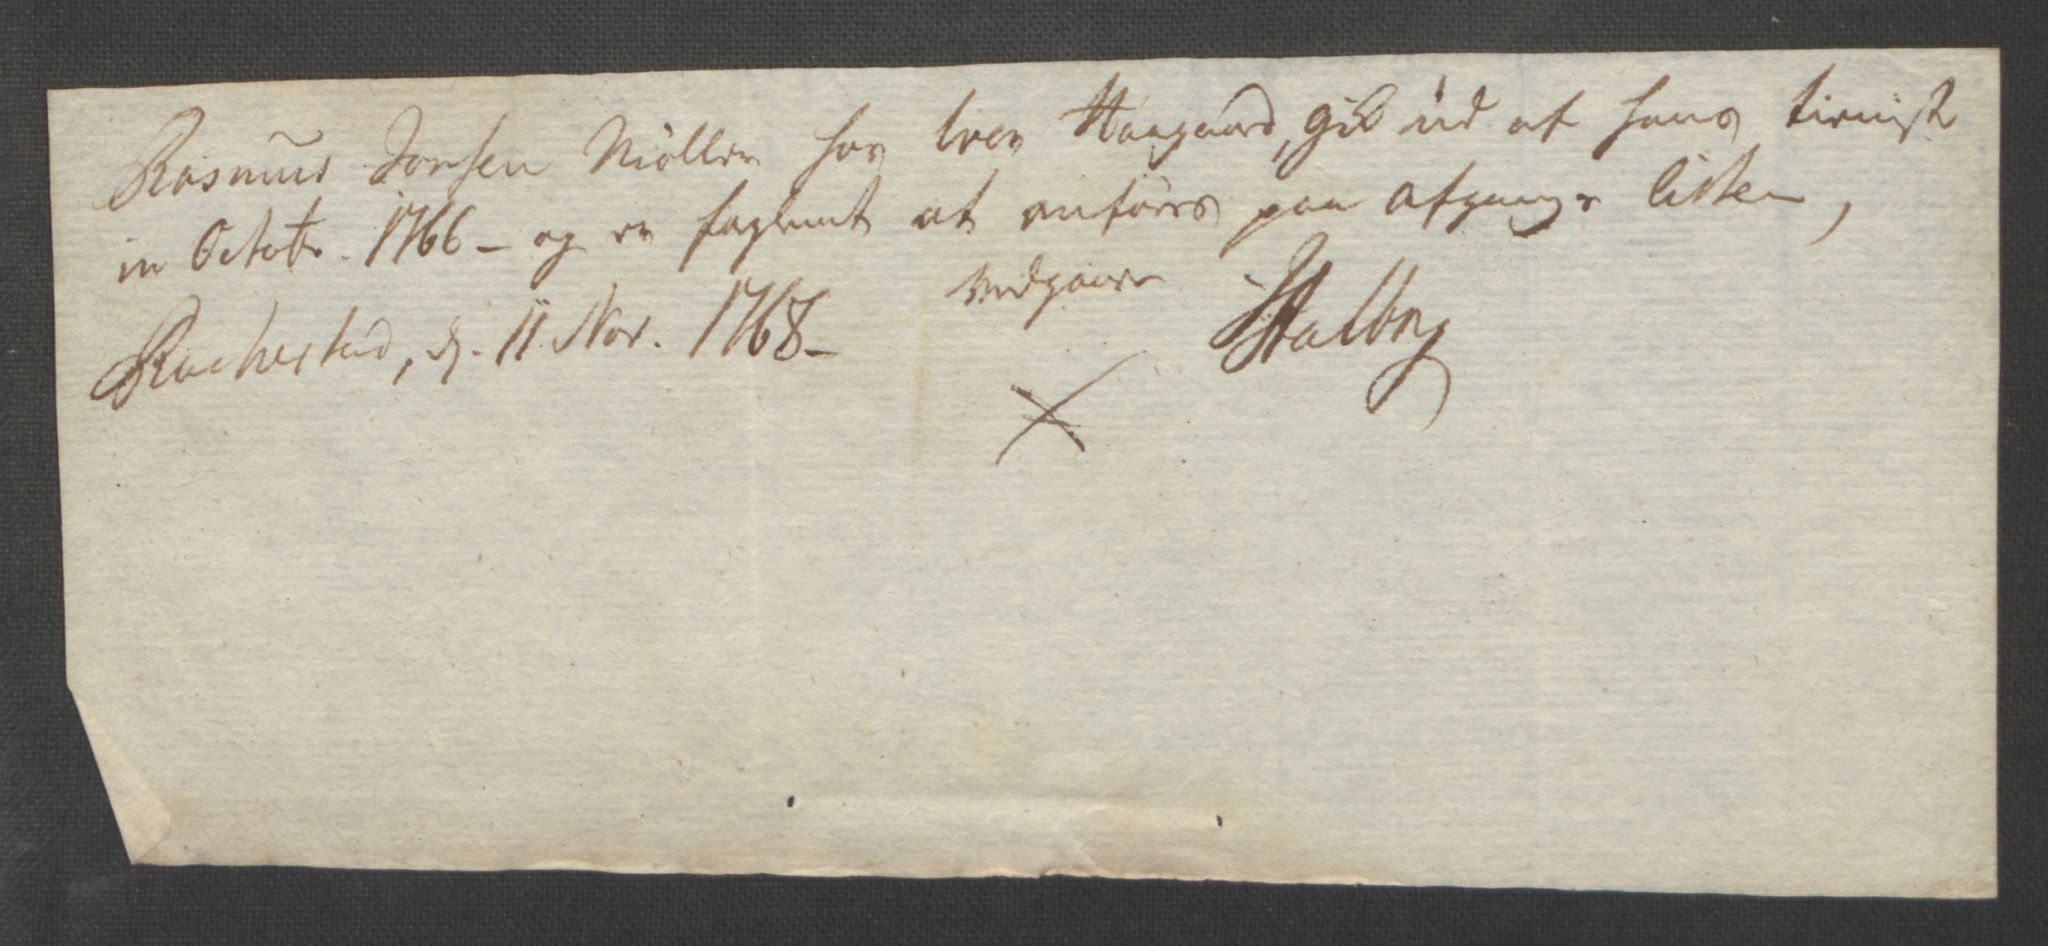 Rasmus Jonsen Møller hos Iver Haagaard, gik ud af hans tieniste
in Octobr. 1766 – og er foglemt at anføres paa Afgangs listen,
Rackestad, d. 11 Nov. 1768 – Vedgaaer JHalbrg